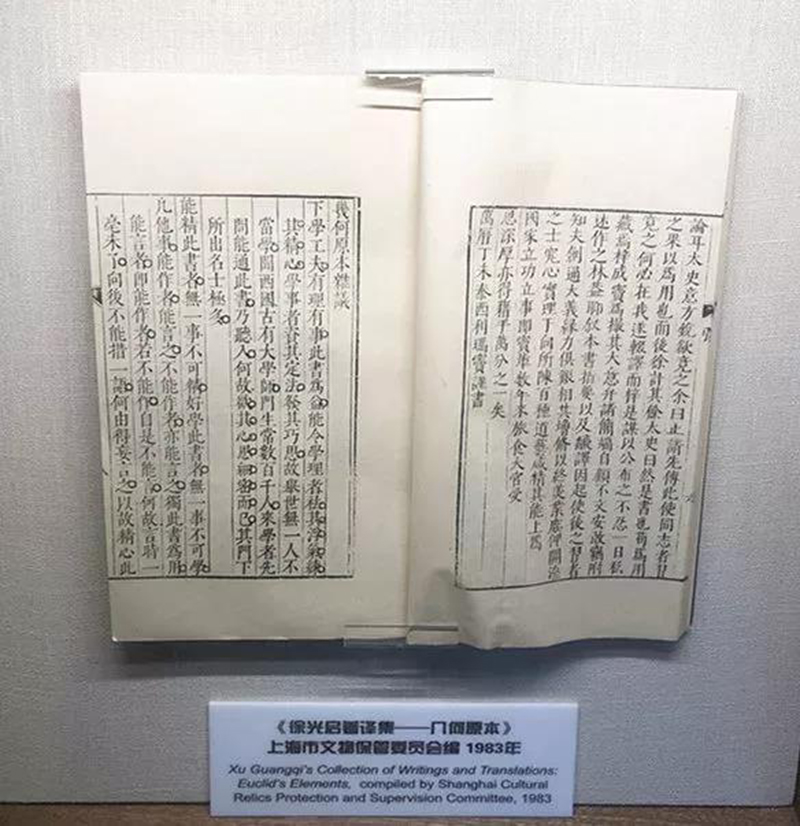 論耳太史意方銳欲竟之余曰止請先傳此使同志者習
之果以爲用也而後徐計其餘太史曰然是書也苟爲用
竟之何必在我遂輟譯而梓是謀以公布之不忍一日私
藏焉梓成竇爲撮其大意弁諸簡端自顧不文安敢竊附
述作之林蓋聊敘本書指要以及翻譯因起使後之習者
知夫創通大義緣力俱艱相共增修以終美業庶俾開濟
之士究心實理于向所陳百種道藝咸精其能上爲
國家立功立事即竇輩數年來旅食大官受
恩深厚亦得藉手萬分之一矣
萬曆丁未泰西利瑪竇謹書
幾何原本雜議
下學工夫有理有事此書爲益能令學理者袪其浮氣練
其精心學事者資其定法發其巧思故舉世無一人不
當學聞西國古有大學師門生常數百千人來學者先
問能通此書乃聽入何故欲其心思細密而已其門下
所出名士極多
能精此書者無一事不可精好學此書者無一事不可學
凡他事能作者能言之不能作者亦能言之獨此書爲用
能言者即能作者若不能作自是不能言何故言時一
毫未了向後不能措一語何由得妄言之以故精心此
《徐光启著译集——几何原本》
上海市文物保管委员会编 1983年
Xu Guangqi's Collection of Writings and Translations:
Euclid's Elements, compiled by Shanghai Cultural
Relics Protection and Supervision Committee, 1983